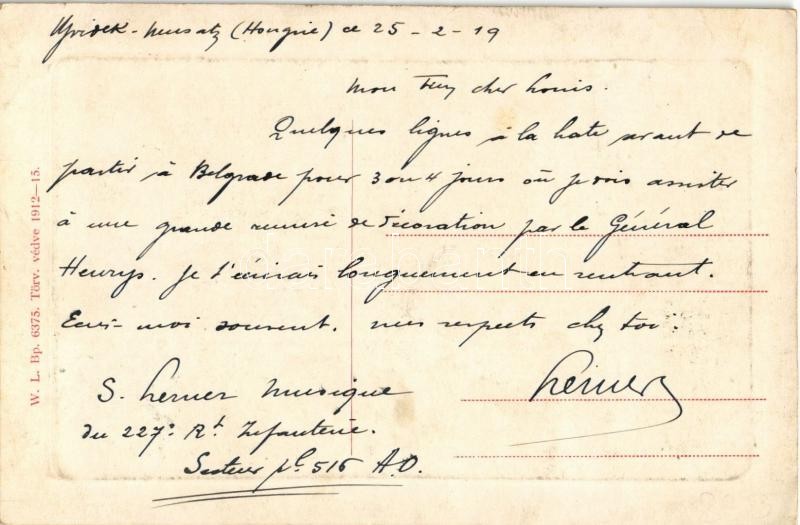 Ujvidek-Neusatz (Hongrie) ce 25-2-19
Mon Très cher Louis.
Quelques lignes à la hate avant de
partir à Belgrade pour 3 ou 4 jours où je dois assister
à une grande remise de décoration par le Général
Henrys. Je t'écrirais longuement en rentrant.
Ecris-moi souvent. mes respects chez toi.
Lerner
S. Lerner Musique
du 227e Rt Infanterie.
Secteur pal 516 A.O.
W. L. Bp. 6375. Törv. védve 1912—15.